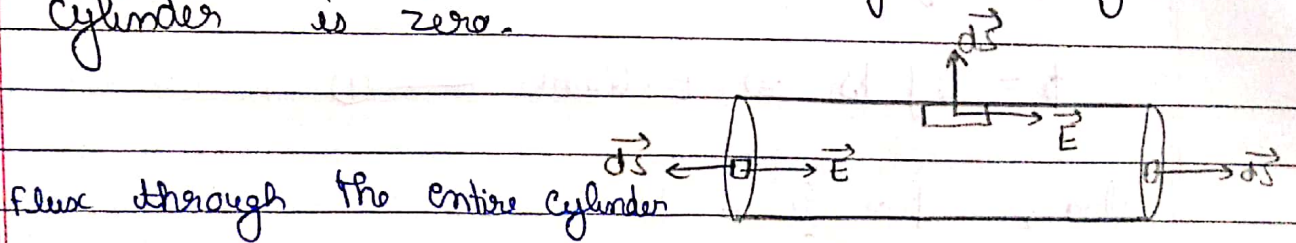 cylinder is zero.
dS⃗
E⃗
dS⃗ E⃗ dS⃗
flux through the entire cylinder